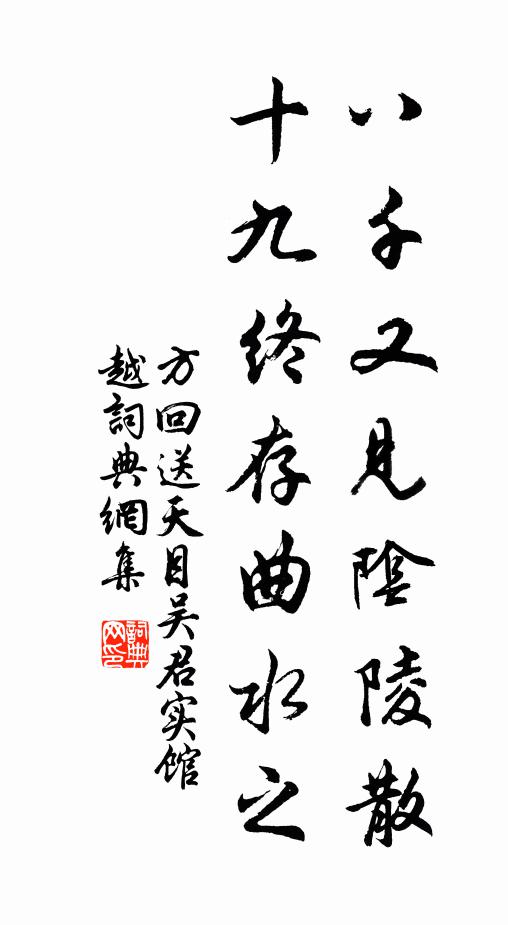 八千又見陰陵散
十九终存曲水之
方回送天目吴君实馆
越詞典網集
詞典网印